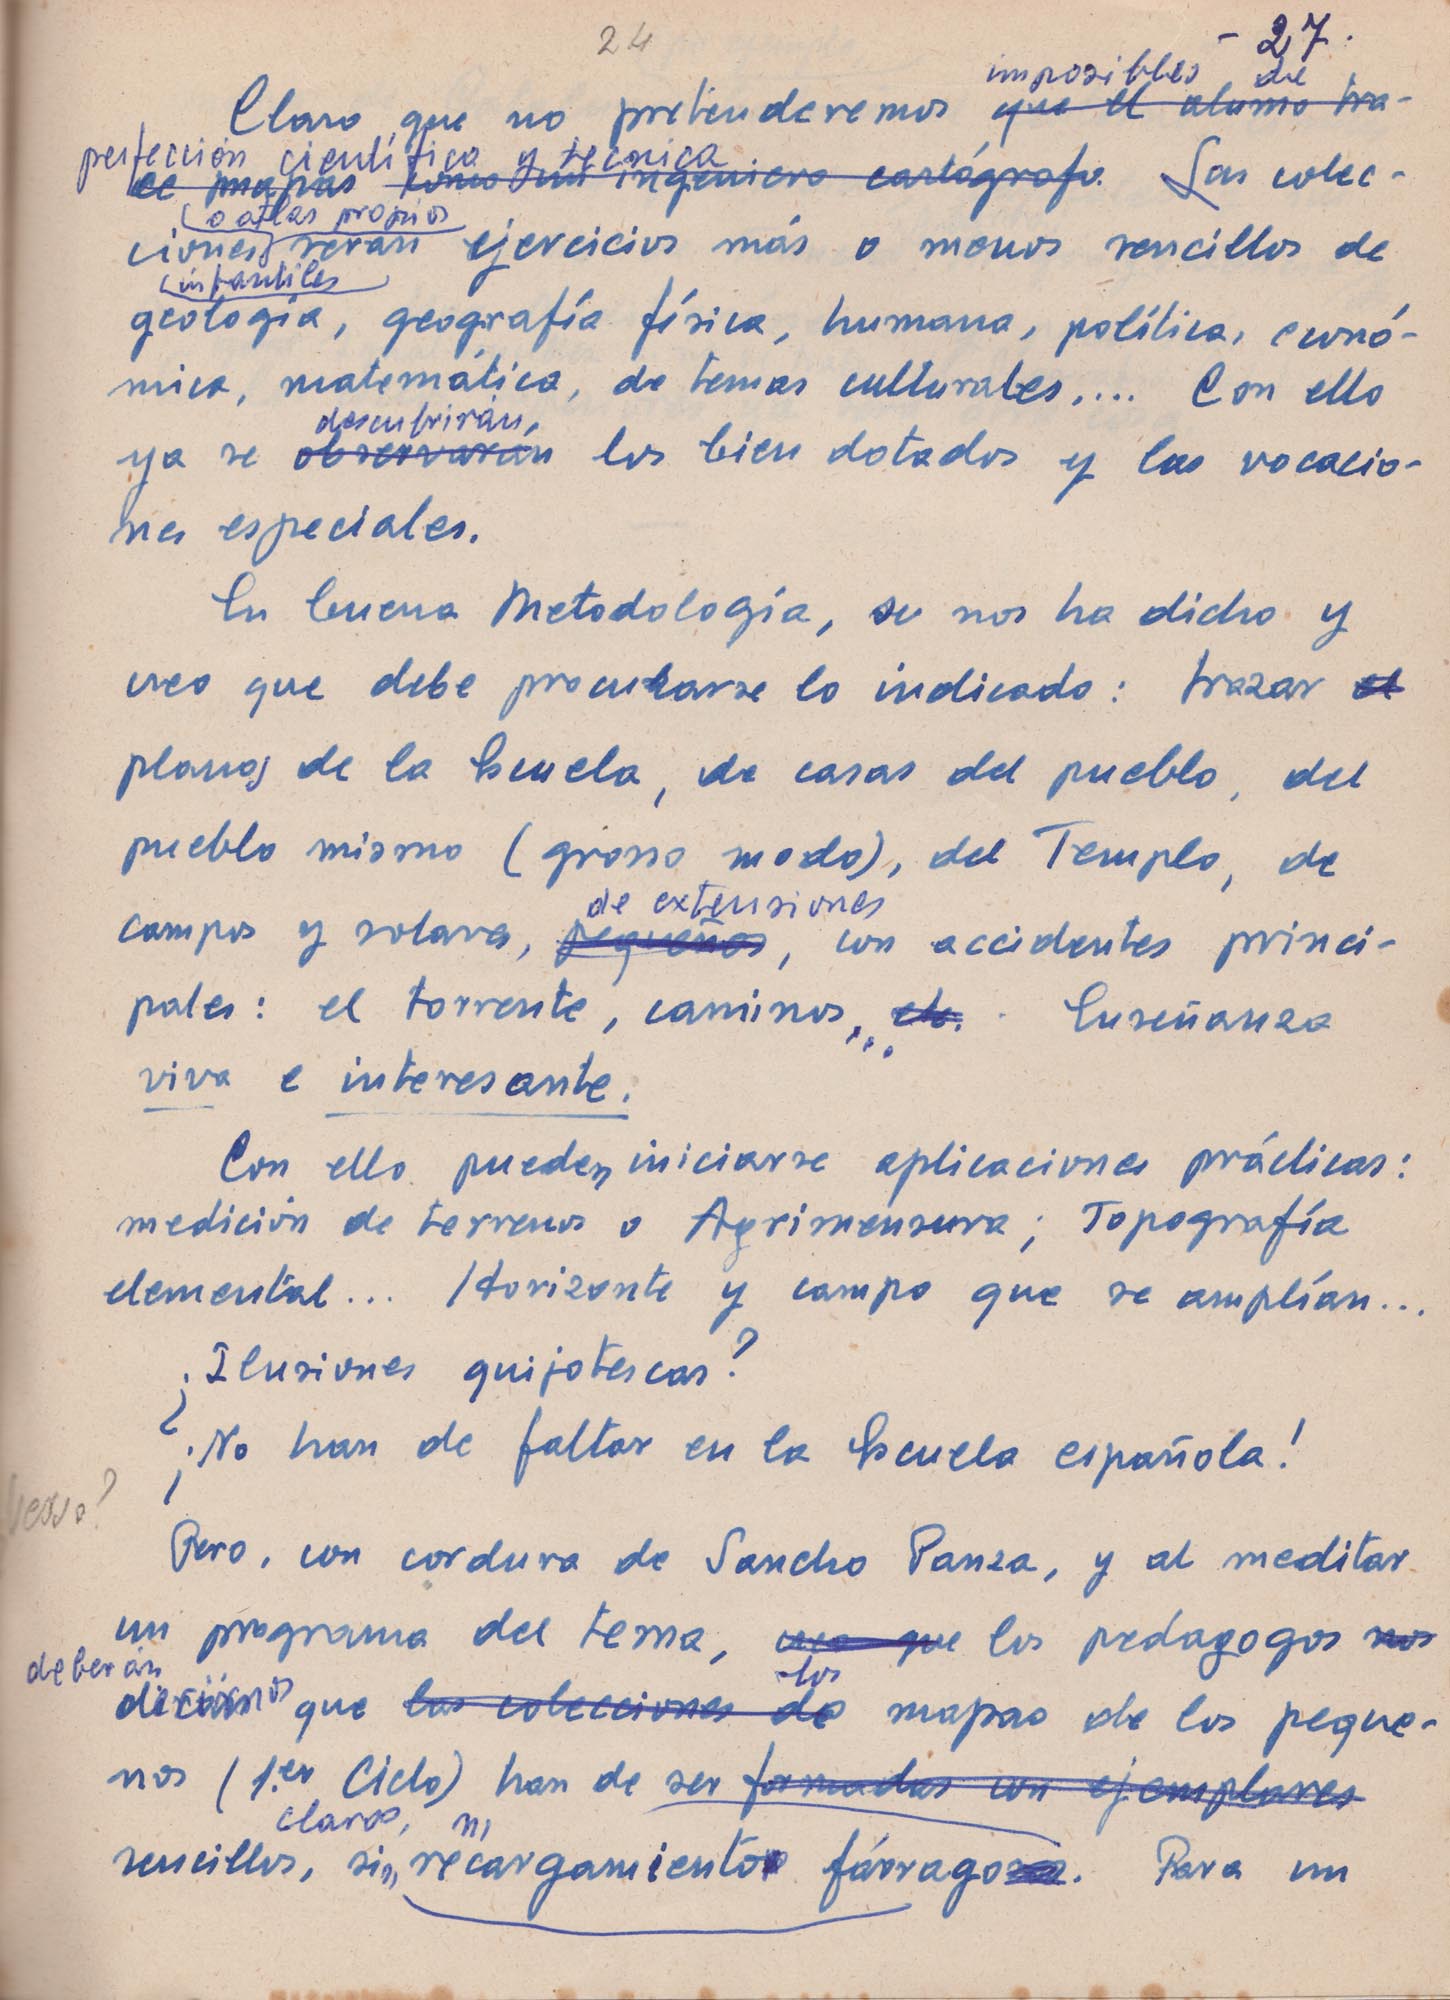 24
- 27.
imposibles de
Claro que no pretenderemos que el alumno tra-
perfección científica y técnica
ce mapas como un ingeniero cartógrafo. Las colec-
o atlas propios
ciones serán ejercicios más o menos sencillos de
infantiles
geología, geografía física, humana, política, econó-
mica, matemática, de temas culturales,... Con ello
descubrirán,
ya se observarán los bien dotados y las vocacio-
nes especiales.
En buena Metodología, se nos ha dicho y
creo que debe procurarse lo indicado: trazar el
planos de la Escuela, de casas del pueblo, del
pueblo mismo (grosso modo), del Templo, de
de extensiones
campos y solares, pequeños, con accidentes princi-
pales: el torrente, caminos, etc. ... Enseñanza
viva e interesante.
Con ello pueden iniciarse aplicaciones prácticas:
medición de terrenos o Agrimensura; Topografía
elemental... Horizonte y campo que se amplían...
¿Ilusiones quijotescas?
¡No han de faltar en la Escuela española!
Pero, con cordura de Sancho Panza, y al meditar
un programa del tema, creo que los pedagogos nos
deberán los
decirnos que las colecciones de mapas de los peque-
nos (1.er Ciclo) han de ser formadas con ejemplares
claros, ni
sencillos, sin recargamiento fárrago. Para un